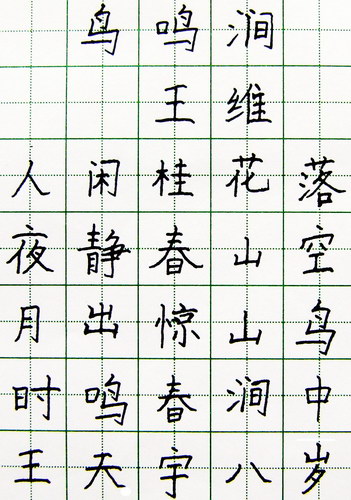 鸟鸣涧
王维
人闲桂花落
夜静春山空
月出惊山鸟
时鸣春涧中
王天宇八岁